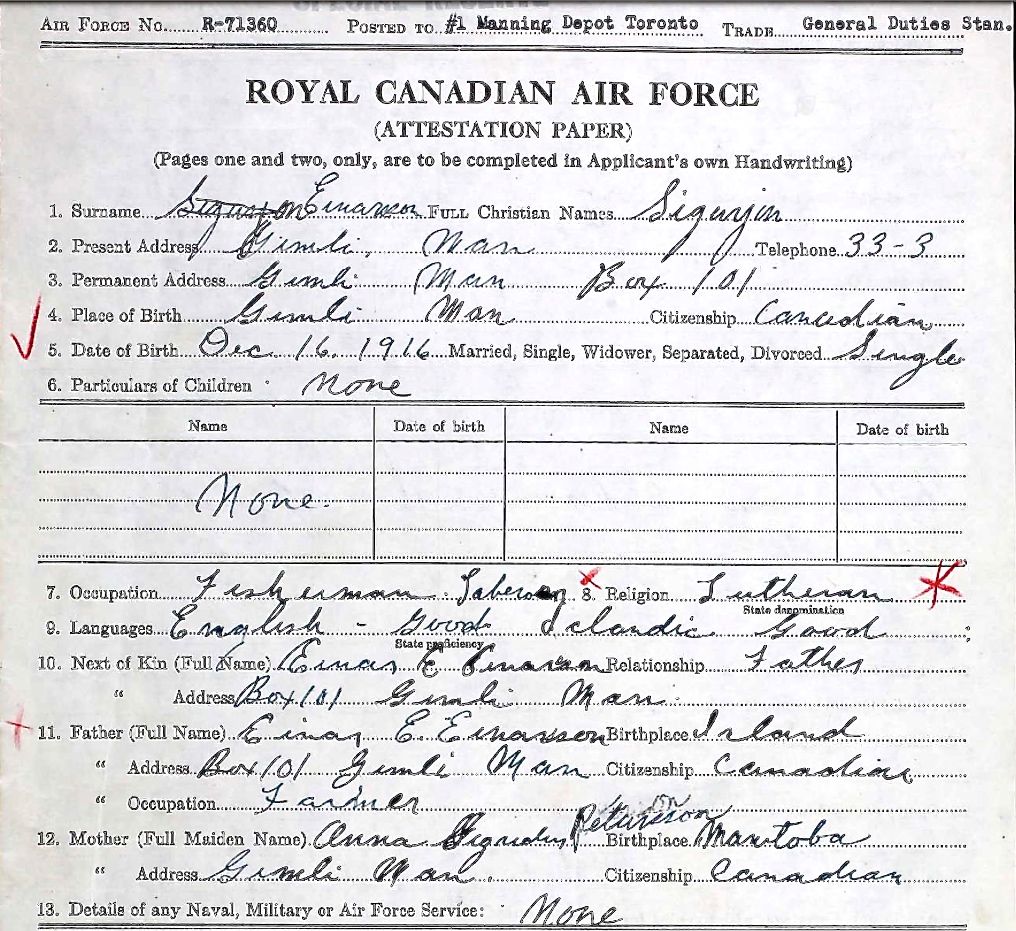 AIR FORCE NO. R-71360 POSTED TO #1 Manning Depot Toronto TRADE General Duties Stan.
ROYAL CANADIAN AIR FORCE
(ATTESTATION PAPER)
(Pages one and two, only, are to be completed in Applicant's own Handwriting)
1. Surname Einarson FULL Christian Names Sigurjon
2. Present Address Gimli, Man Telephone 33-3
3. Permanent Address Gimli Man Box 101
4. Place of Birth Gimli Man Citizenship Canadian
5. Date of Birth Dec. 16. 1916 Married, Single, Widower, Separated, Divorced Single
6. Particulars of Children None
Name Date of birth Name Date of birth
None.
7. Occupation Fisherman. 8. Religion Lutheran
State denomination
9. Languages English - Good Iclandic Good
State proficiency
10. Next of Kin (Full Name) Einar E Einarson Relationship Father
" Address Box 101 Gimli Man.
11. Father (Full Name) Einar E. Einarson Birthplace Iceland
" Address Box 101 Gimli Man Citizenship Canadian
" Occupation
12. Mother (Full Maiden Name) Anna Peturson Birthplace Manitoba
" Address Gimli Man. Citizenship Canadian
13. Details of any Naval, Military or Air Force Service: None